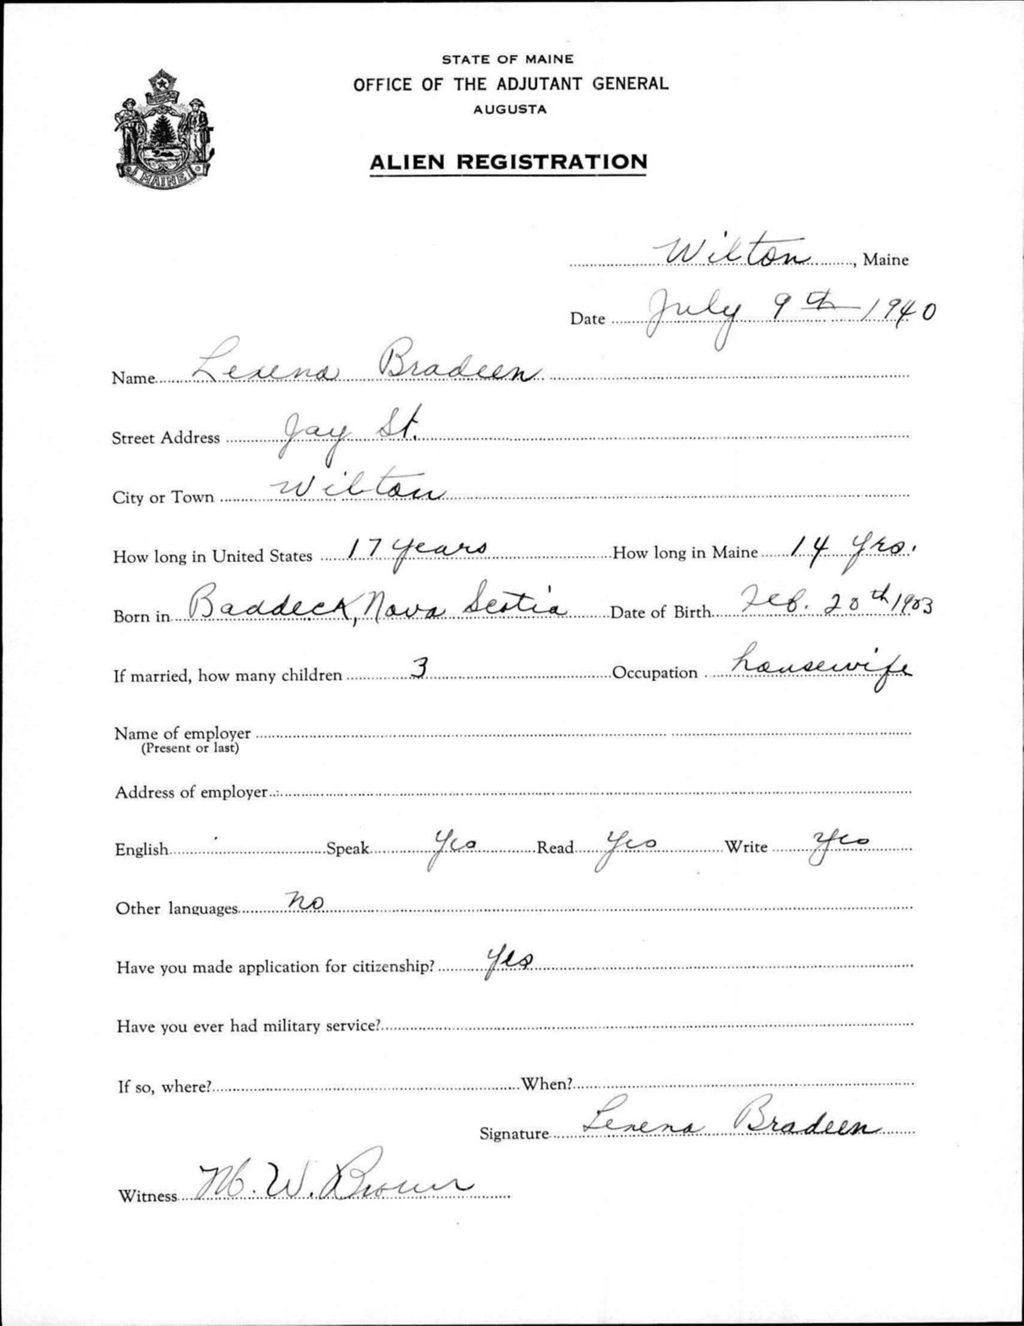 STATE OF MAINE
OFFICE OF THE ADJUTANT GENERAL
AUGUSTA
MAINE
ALIEN REGISTRATION
Wilton, Maine
Date July 9th 1940
Name Bradeen
Street Address Jay St.
City or Town Wilton
How long in United States 17 years How long in Maine 14 yrs.
Born in Baddeck, Nova Scotia Date of Birth Feb. 28th 1903
If married, how many children 3 Occupation housewife
Name of employer
(Present or last)
Address of employer
English Speak Yes Read Yes Write Yes
Other languages No
Have you made application for citizenship? Yes
Have you ever had military service?
If so, where? When?
Signature Bradeen
Witness M. W. Brown